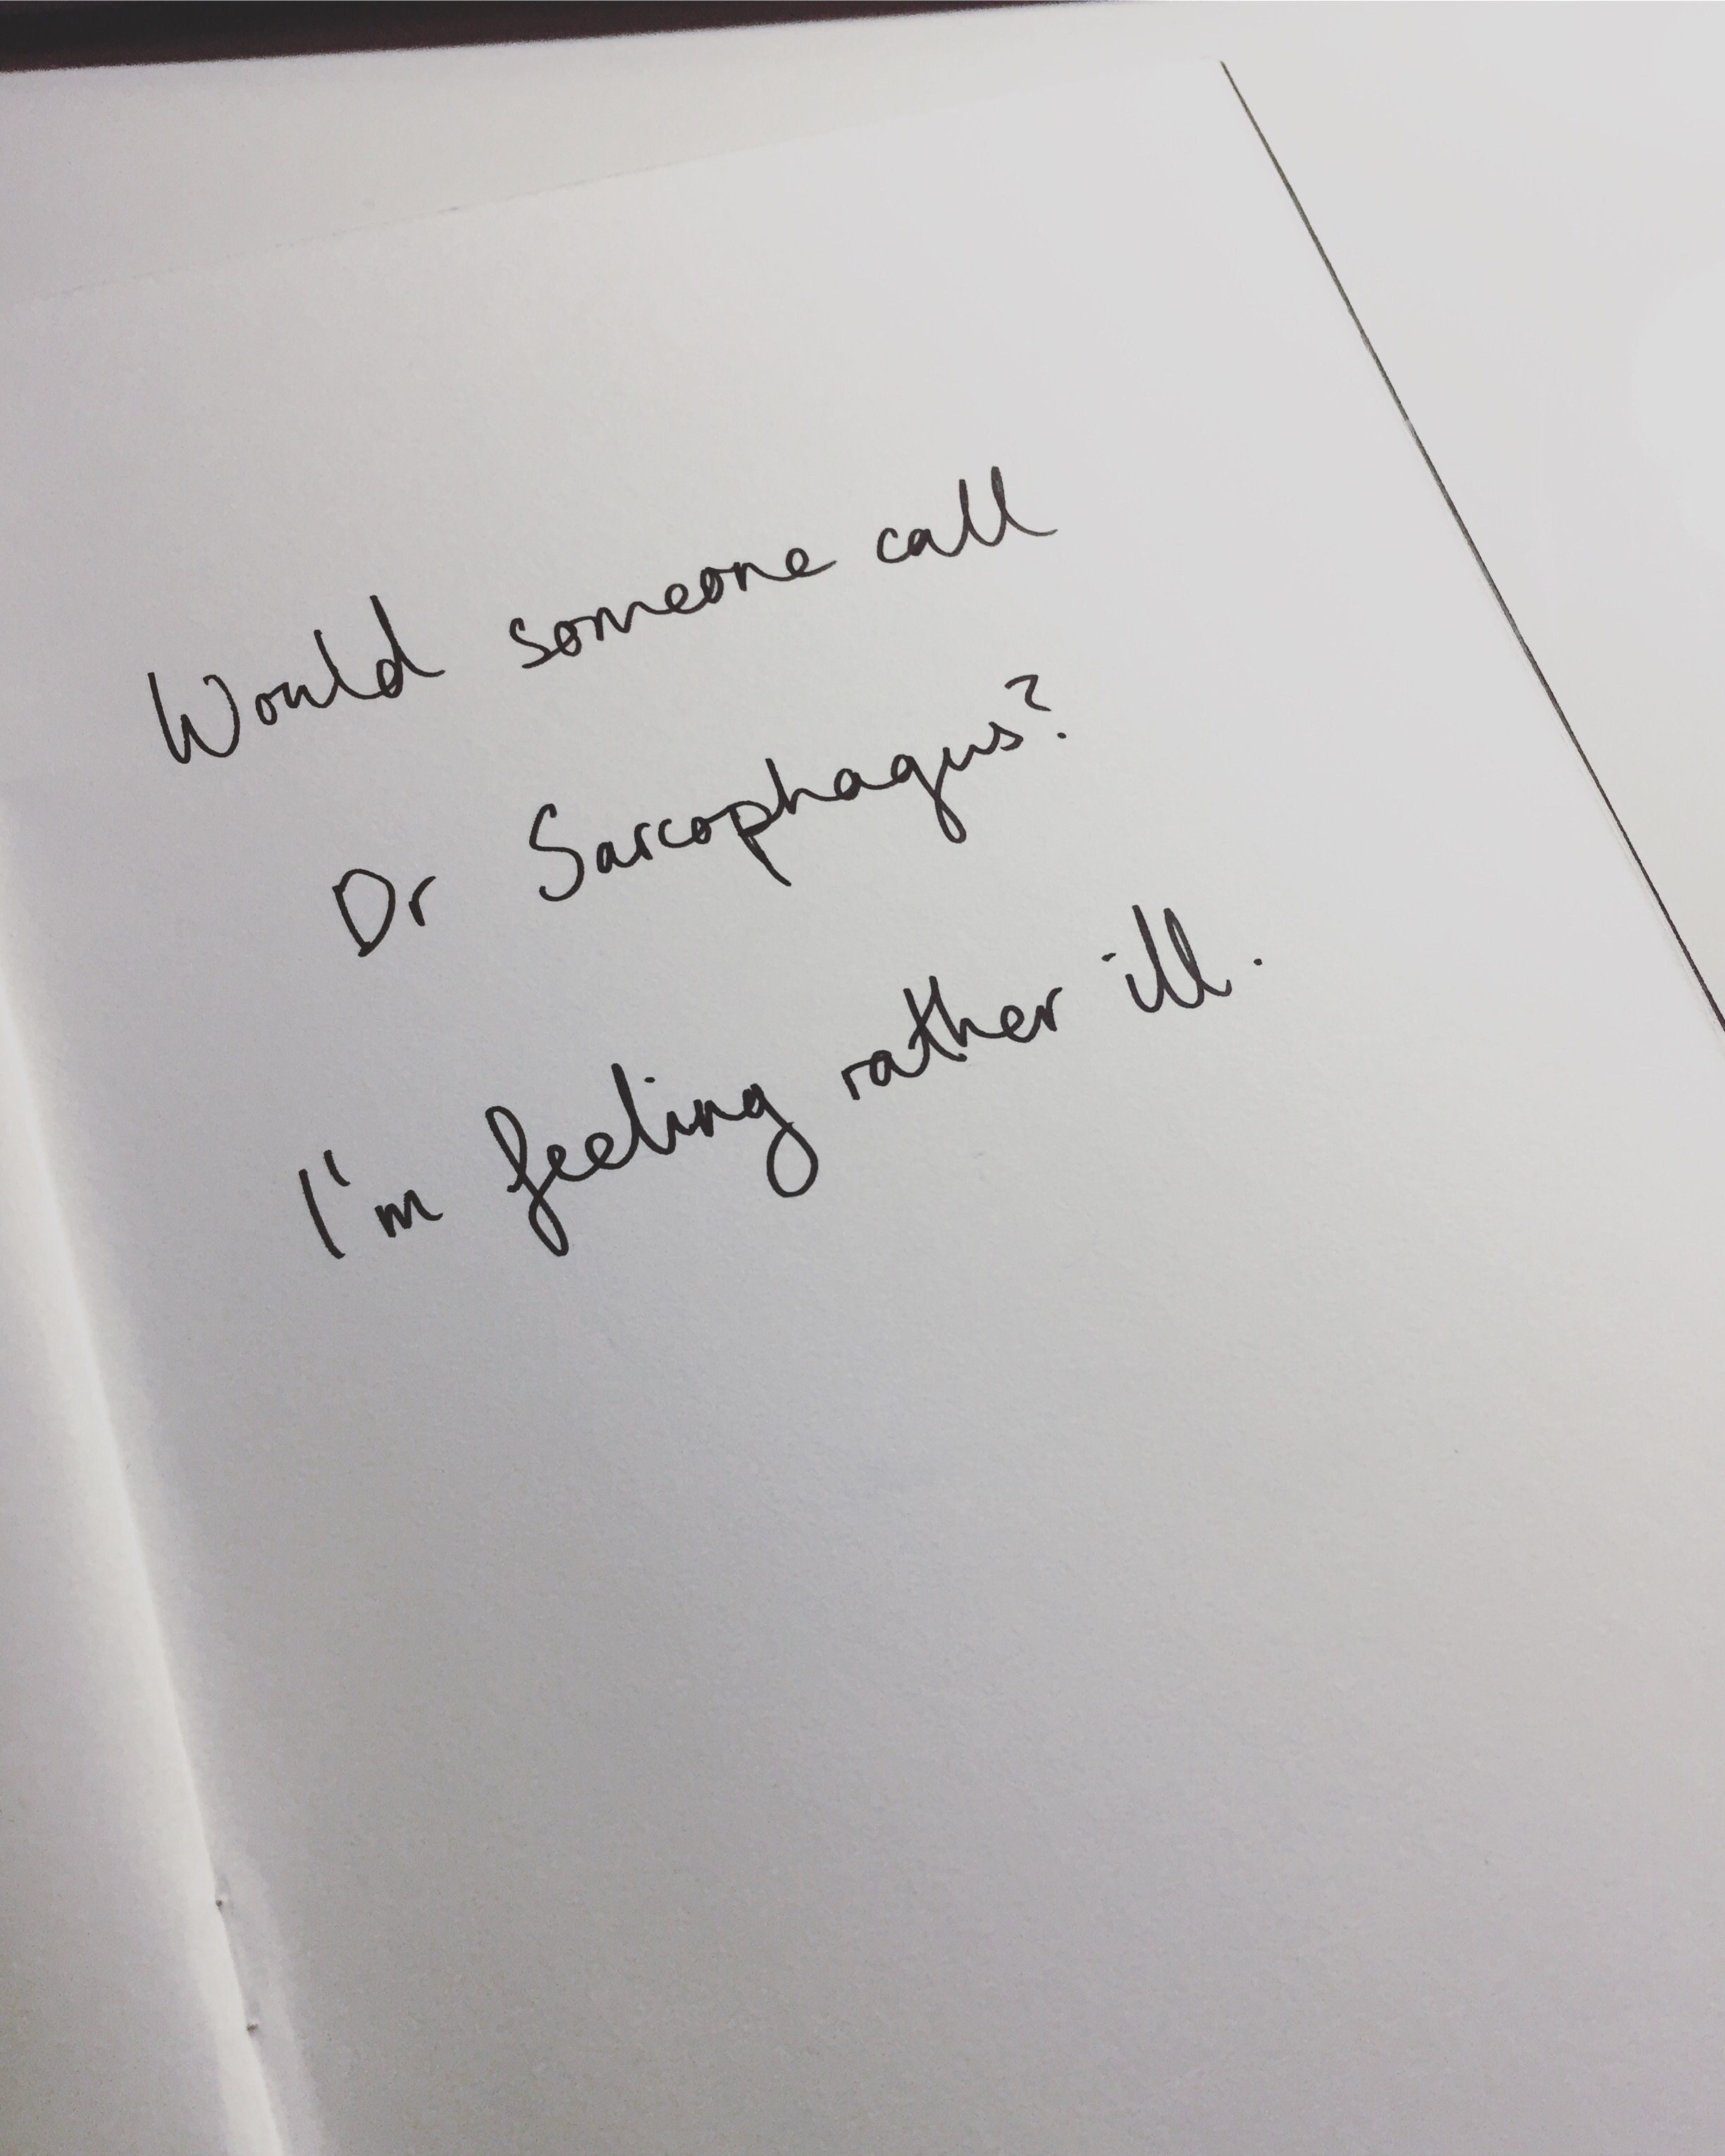 Would someone call
Dr Sarcophagus?
I'm feeling rather ill.